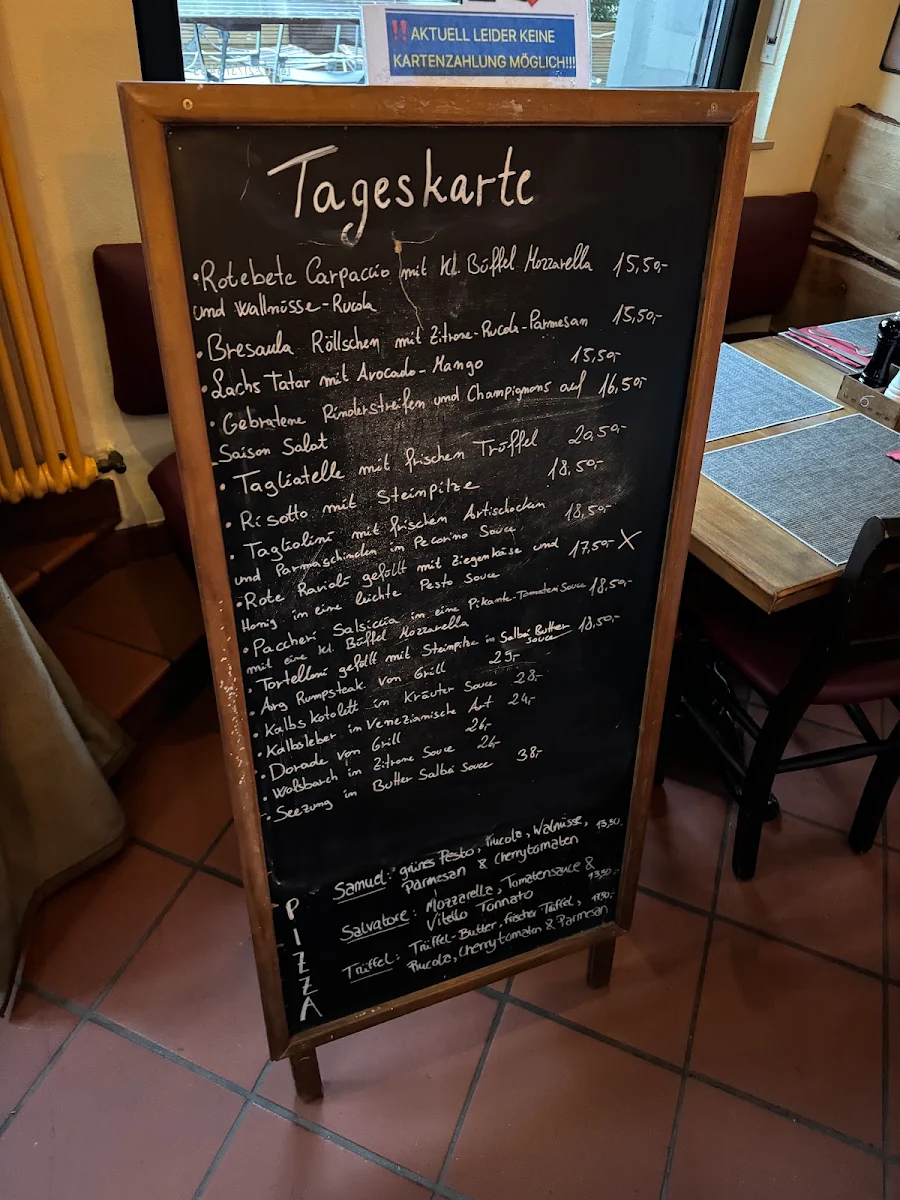 ‼ AKTUELL LEIDER KEINE
KARTENZAHLUNG MÖGLICH!!!
Tageskarte
• Rotebete Carpaccio mit Kl. Büffel Mozzarella 15,50,-
und Wallnüsse-Rucola
• Bresaula Röllschen mit Zitrone-Rucola-Parmesan 15,50,-
• Lachs Tatar mit Avocado-Mango 15,50,-
• Gebratene Rinderstreifen und Champignons auf 16,50,-
Saison Salat
• Tagliatelle mit frischen Trüffel 20,50,-
• Risotto mit Steinpilze 18,50,-
• Tagliolini mit frischen Artischocken 18,50,-
und Parmaschinken in Pecorino Souce
• Rote Ravioli gefüllt mit Ziegenkäse und 17,50,- X
Honig in eine leichte Pesto Souce
• Paccheri Salsiccia in eine Pikante-Tomaten Souce 18,50,-
mit eine kl. Büffel Mozzarella
• Tortelloni gefüllt mit Steinpilze in Salbei Butter Souce 18,50,-
• Arg Rumpsteak von Grill 29,-
• Kalbs kotolett in Kräuter Souce 28,-
• Kalbsleber in Venezianische Art 24,-
• Dorade von Grill 26,-
• Wolsbarch in Zitrone Souce 26,-
• Seezung in Butter Salbei Souce 38,-
PIZZA
Samuel: grünes Pesto, Rucola, Walnüsse, 13,50,
Parmesan & Cherrytomaten
Salvatore: Mozzarella, Tomatensauce & 13,50,-
Vitello Tonnato
Trüffel: Trüffel-Butter, fischer Trüffel,
Rucola, Cherrytomaten & Parmesan
6